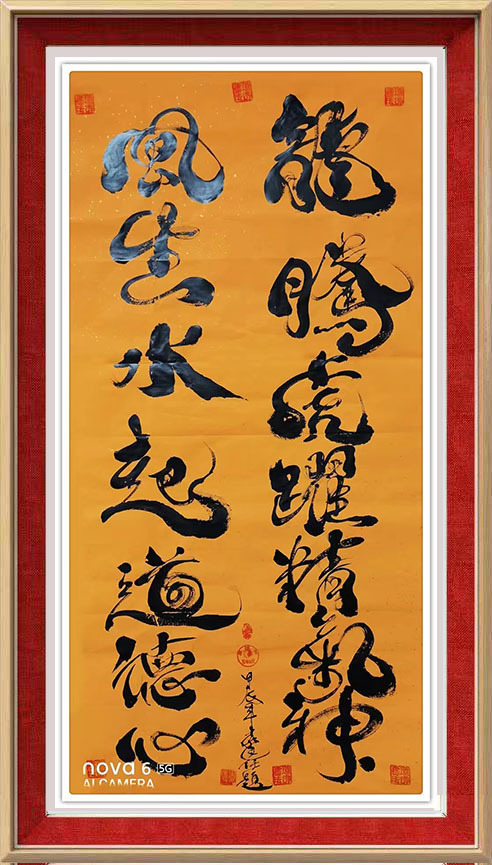 龍騰虎躍精氣神
風生水起道德心
甲辰年
題
nova 6 5G
AI CAMERA